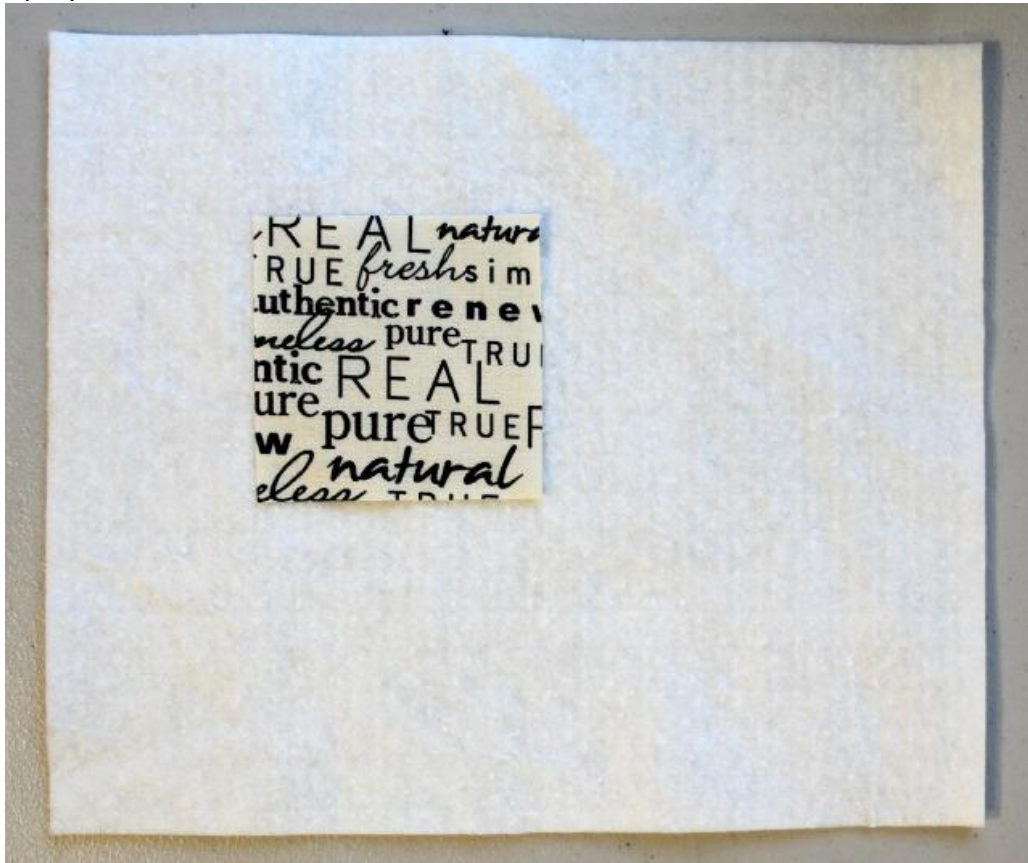 REAL natura
TRUE fresh sim
uthentic renew
meless pure TRU
ntic REAL
ure pure TRUE
w natural
eless TRUE